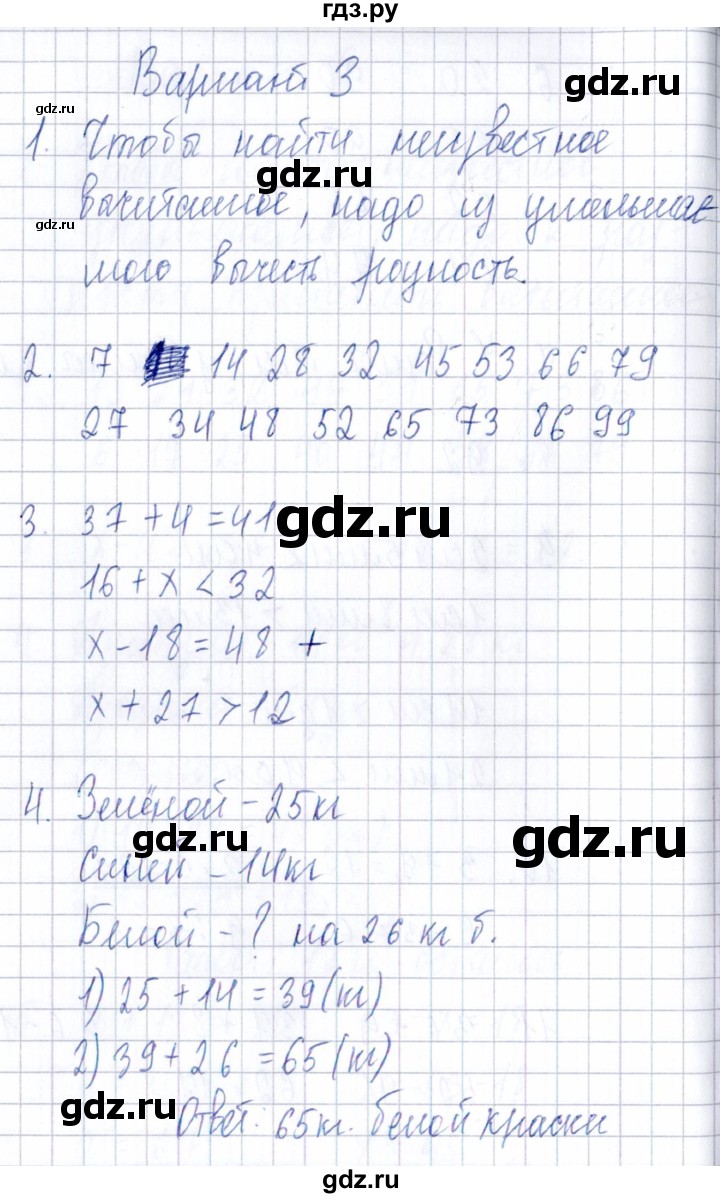 гдз.ру
Вариант 3
1. Чтобы найти неизвестное
вычитаемое, надо из уменьшае-
мого вычесть разность.
2. 7 14 28 32 45 53 66 79
27 34 48 52 65 73 86 99
3. 37 + 4 = 41
16 + x < 32
x - 18 = 48 +
x + 27 > 12
4. Зелёной - 25 кг
Синей - 14 кг
Белой - ? на 26 кг б.
1) 25 + 14 = 39 (кг)
2) 39 + 26 = 65 (кг)
Ответ: 65 кг. белой краски
gdz.ru
gdz.ru
gdz.ru
gdz.ru
gdz.ru
gdz.ru
gdz.ru
gdz.ru
gdz.ru
gdz.ru